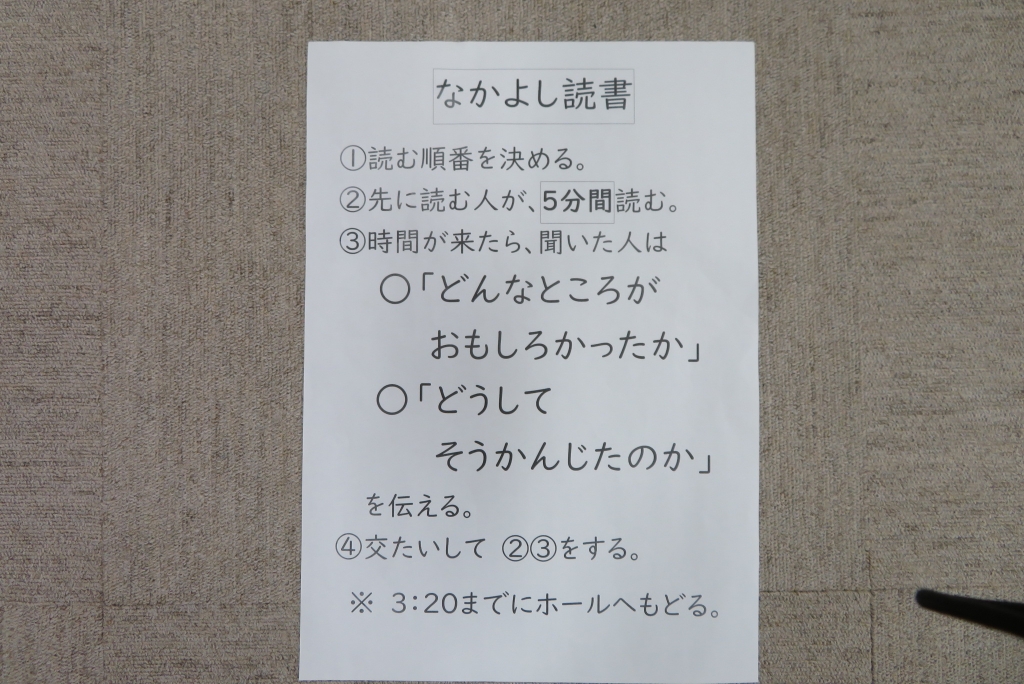 なかよし読書
①読む順番を決める。
②先に読む人が、5分間読む。
③時間が来たら、聞いた人は
〇「どんなところが
おもしろかったか」
〇「どうして
そうかんじたのか」
を伝える。
④交たいして ②③をする。
※ 3:20までにホールへもどる。